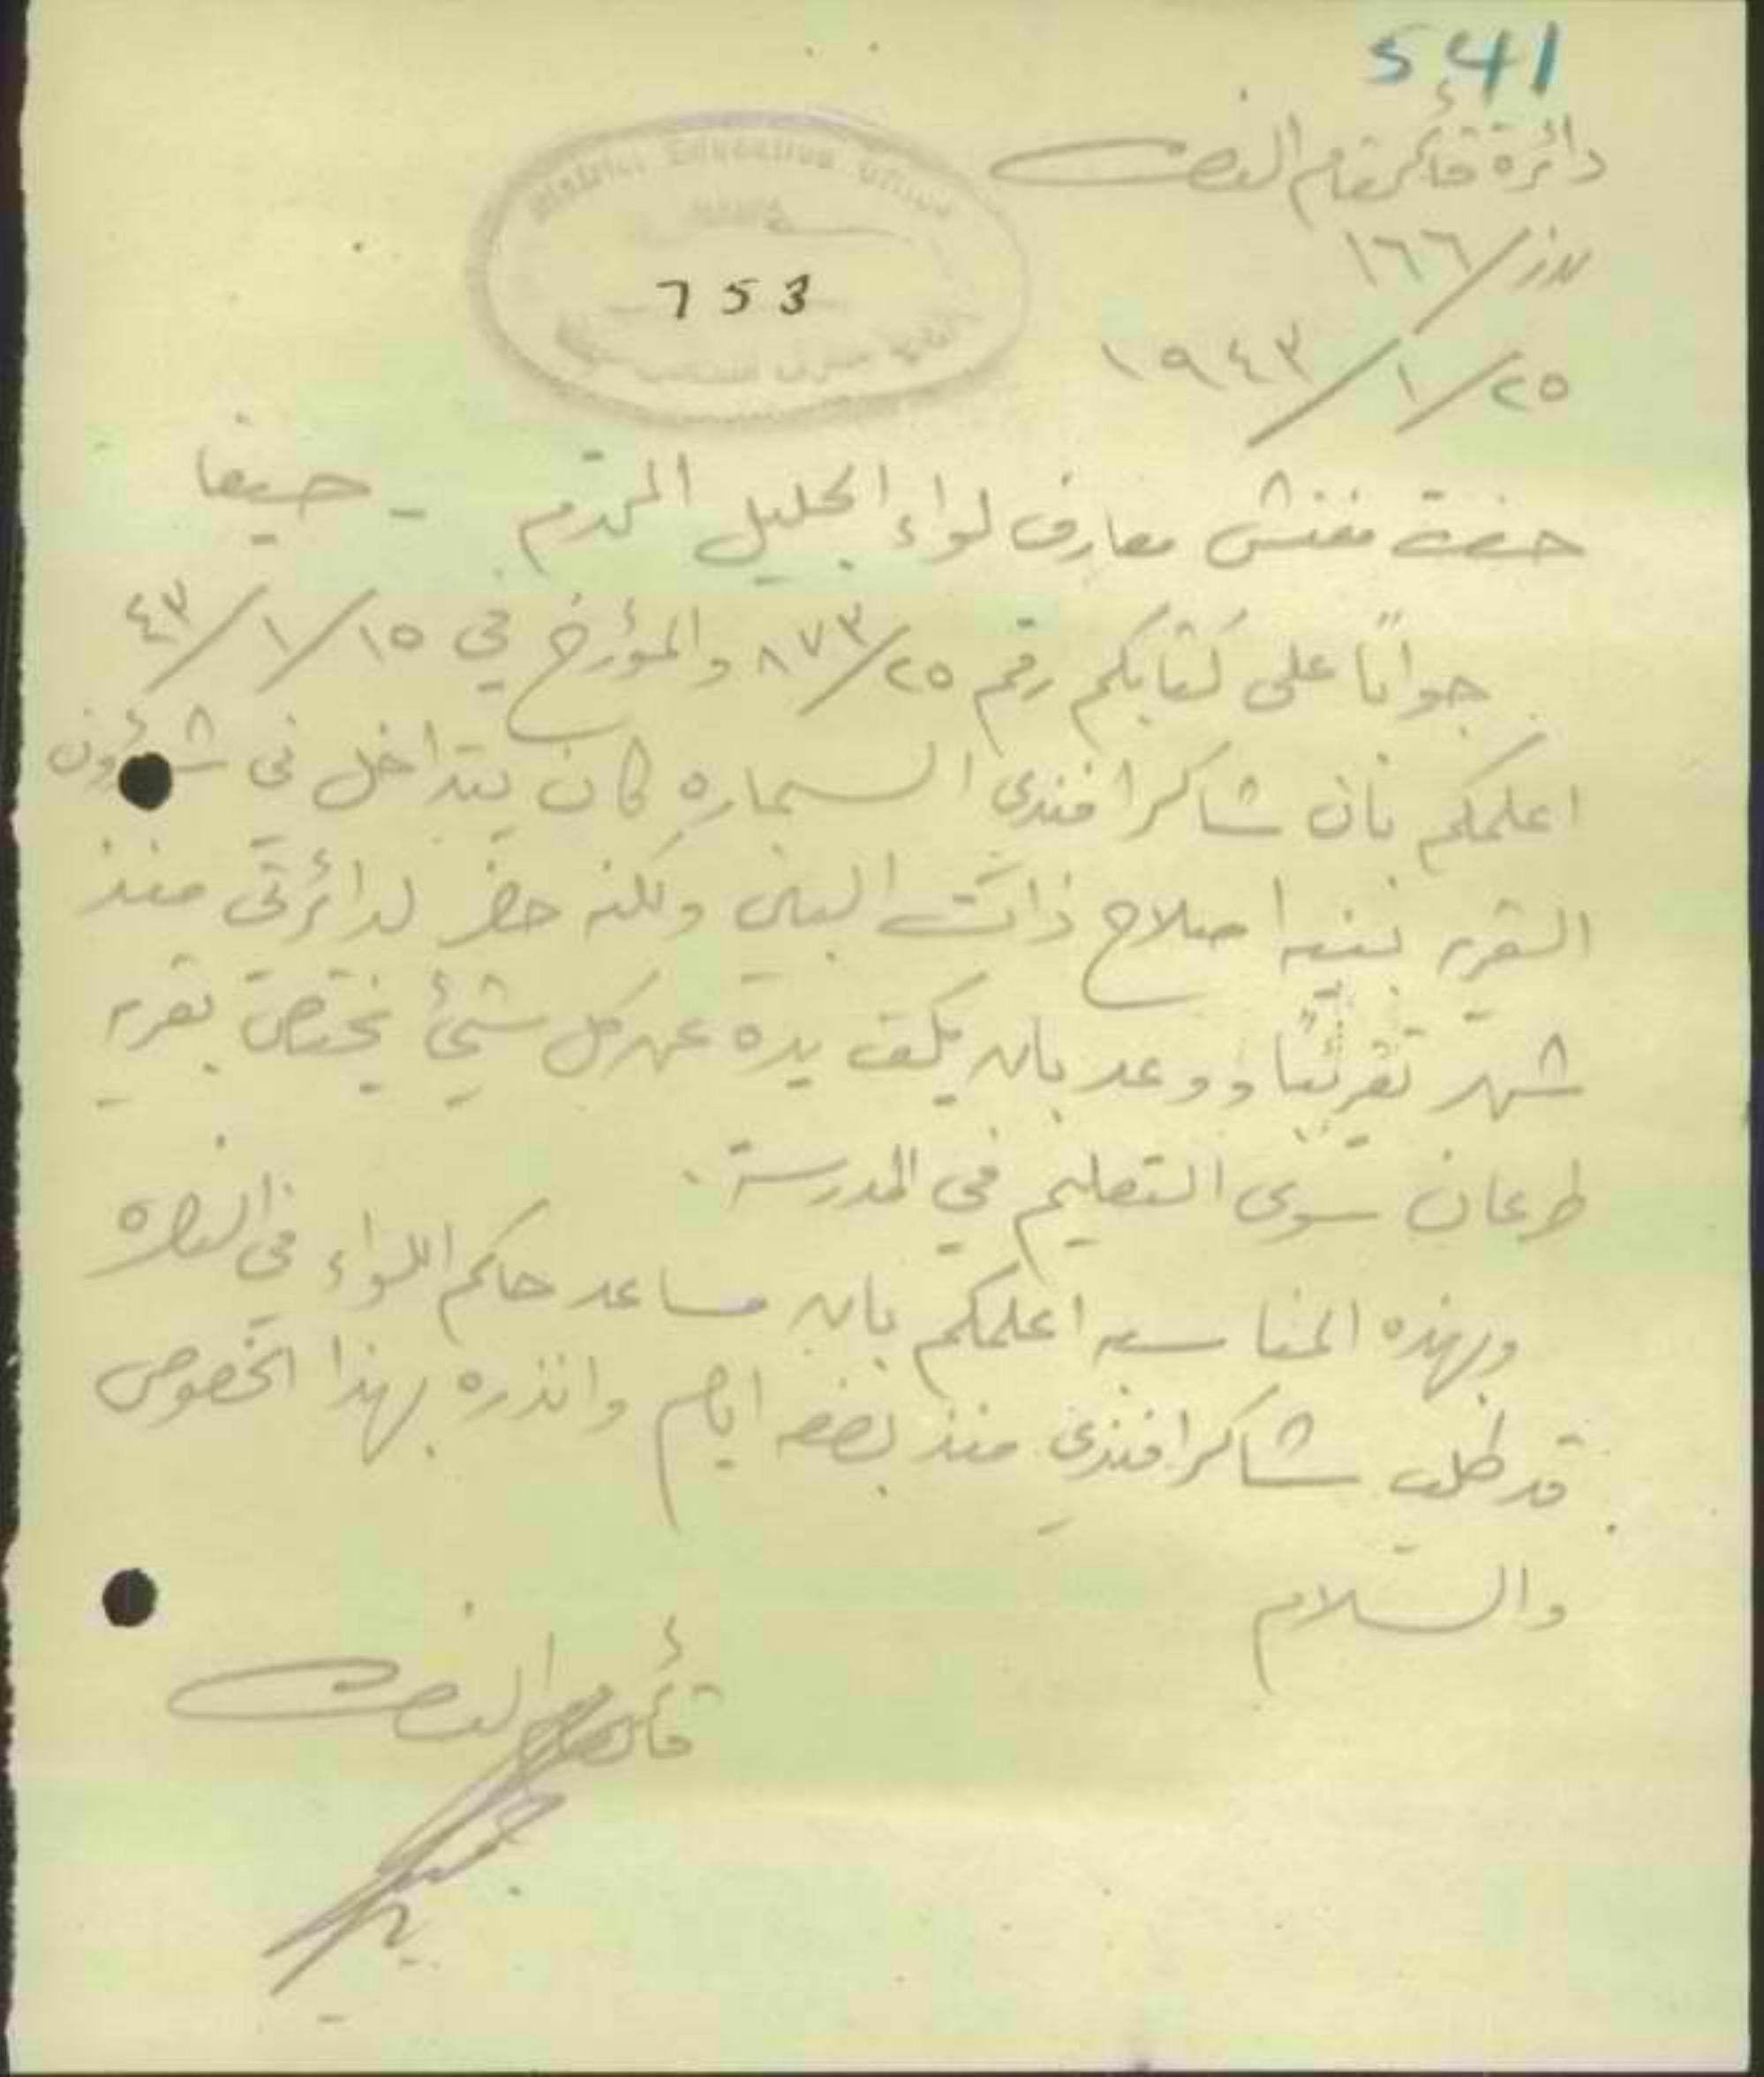 541
دائرة قائمقام الناصرة
166/
25/1/1943
District Education Office
753
حضرة مفتش معارف لواء الجليل المحترم - حيفا
جواباً على كتابكم رقم 873/25 والمؤرخ في 15/1/43
اعلمكم بأن شاكر افندي السماره كان يتداخل في شؤون
القريه بنيه اصلاح ذات البين ولكنه حضر لدائرتي منذ
شهر تقريباً ووعد بان يكف يده عن كل شيئ يختص بقريه
طرعان سوى التعليم في المدرسة.
وبهذه المناسبه اعلمكم بان مساعد حاكم اللواء في الناصره
قد طلب شاكر افندي منذ بضعه ايام وانذره بهذا الخصوص
والسلام
قائمقام الناصرة